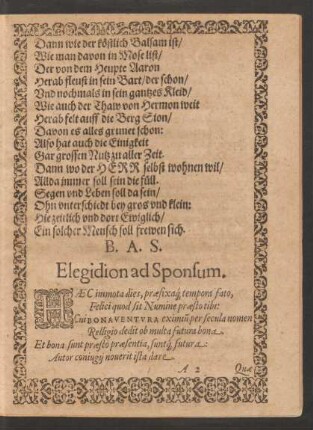 Dann wie der köstlich Balsam ist/
Wie man davon in Mose list/
Der von dem Heupte Aaron
Herab fleust in sein Bart/der schon/
Vnd nochmals in sein gantzes Kleid/
Wie auch der Thaw von Hermon weit
Herab felt auff die Berg Sion/
Davon es alles grunet schon:
Also hat auch die Einigkeit
Gar grossen Nutz zu aller Zeit.
Dann wo der HERR selbst wohnen wil/
Allda immer soll sein die füll.
Segen vnd Leben soll da sein/
Ohn vnterschiedt bey gros vnd klein:
Hie zeitlich vnd dort Ewiglich/
Ein solcher Mensch soll frewen sich.
B. A. S.
Elegidion ad Sponsum.
HÆC immota dies, præfixaq́; tempora fato,
Felici quod sit Numine præsto tibi:
Cui BONAVENTVRA eximiũ per secula nomen
Religio dedit ob multa futura bona.
Et bona sunt præsto præsentia, suntq́; futura
Autor coniugij noverit ista dare.
A 2 Quæ